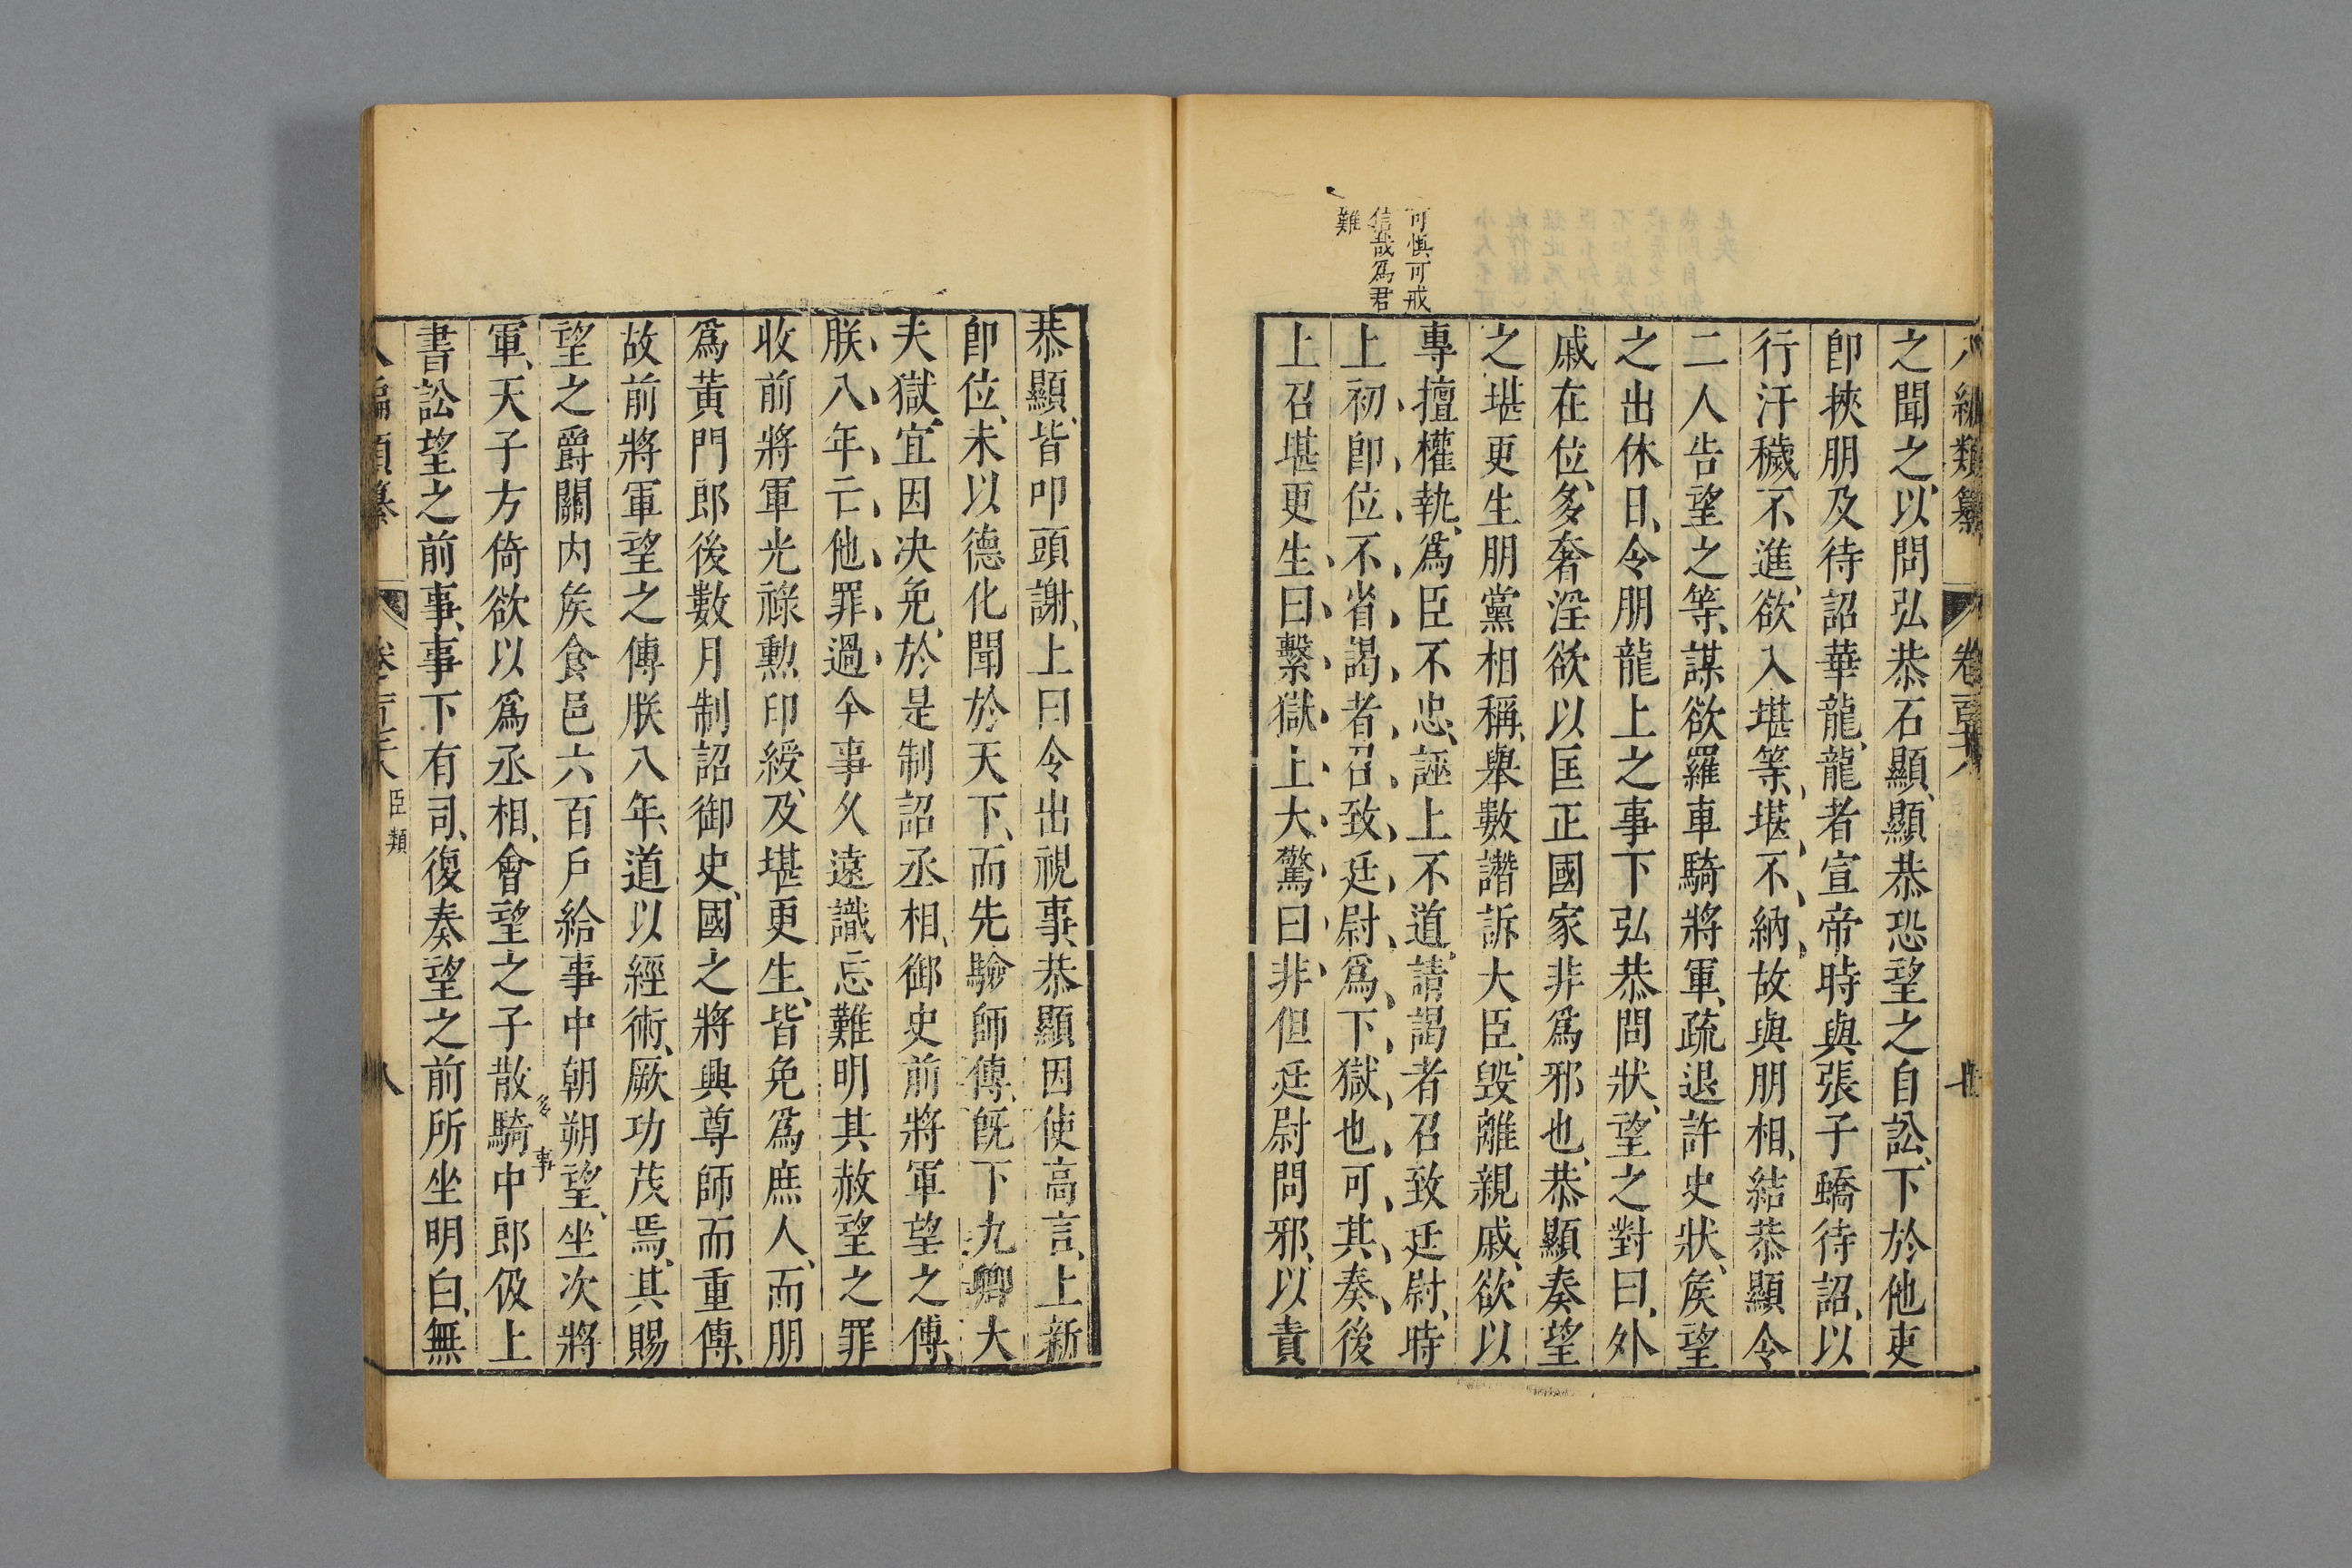 之聞之、以問弘恭石顯、顯恭恐望之自訟、下於他吏
卽挾朋及待詔華龍、龍者宣帝時與張子蟜待詔、以
行汙穢不進、欲入堪等、堪不納、故與朋相結恭顯令
二人告望之等、謀欲羅車騎將軍、疏退許史狀、矦望
之出休日、令朋龍上之事下弘恭問狀、望之對曰、外
戚在位、多奢淫欲以匡正國家非爲邪也、恭顯奏望
之堪更生朋黨相稱、舉數譖訴大臣、毀離親戚、欲以
專擅權執、爲臣不忠、誣上不道、請謁者召致廷尉、時
上初卽位不省謁者召致廷尉爲下獄也可其奏後
上召堪更生曰繫獄上大驚曰非但廷尉問邪、以責
可慎可戒
信哉爲君
難
恭顯、皆叩頭謝、上曰令出視事、恭顯因使高言、上新
卽位、未以德化聞於天下、而先驗師傅、旣下九卿大
夫獄、宜因决免、於是制詔丞相、御史前將軍望之傅、
朕八年亡他罪過今事久遠識忘難明其赦望之罪
收前將軍光祿勲印綬、及堪更生、皆免爲庶人、而朋
爲黃門郎後數月制詔御史、國之將興尊師而重傅、
故前將軍望之傅朕八年、道以經術、厥功茂焉、其賜
望之爵關内矦食邑六百戶給事中朝朔望、坐次將
軍、天子方倚欲以爲丞相、會望之子散騎中郎伋上
書訟望之前事、事下有司、復奏望之前所坐明白、無
臣類
八